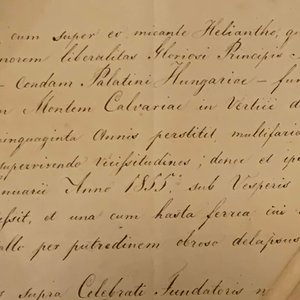 cum super eo micante Heliantho, q
norem liberalitas Gloriosi Principis
Condam Palatini Hungariae - fu
Montem Calvariae in Vertice d
inquaginta Annis perstitit multifaria
supervivendo Vicifsitudines; donec et ip
nuarii Anno 1855 sub Vesperis
efsit, et una cum hasta ferrea cui
allo per putredinem obroso delapsus
supra Celebrati Fundatoris n